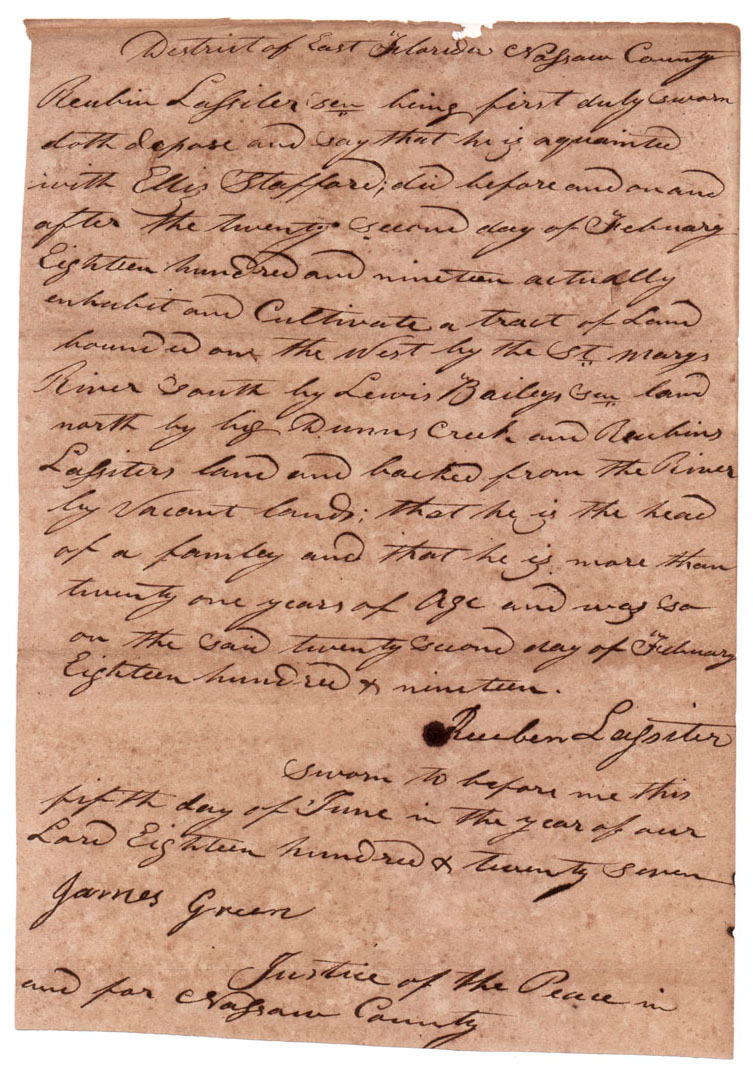 District of East Florida Nassaw County
Reubin Lassiter sen being first duly sworn
doth depose and say that he is aquainted
with Ellis Stafford; did before and on and
after the twenty second day of Febuary
Eighteen hundred and nineteen actually
enhabit and Cultivate a tract of Land
bounded on the West by the St. marys
River South by Lewis Baileys sen land
north by big Dunns Creek and Reubins
Lassiters land and backed from the River
by Vacant lands; that he is the head
of a famley and that he is more than
twenty one years of Age and was so
on the said twenty second day of Febuary
Eighteen hundred & nineteen.
Reuben Lassiter
Sworn to before me this
fifth day of June in the year of our
Lord Eighteen hundred & twenty seven
James Green
Justice of the Peace in
and for Nassaw County